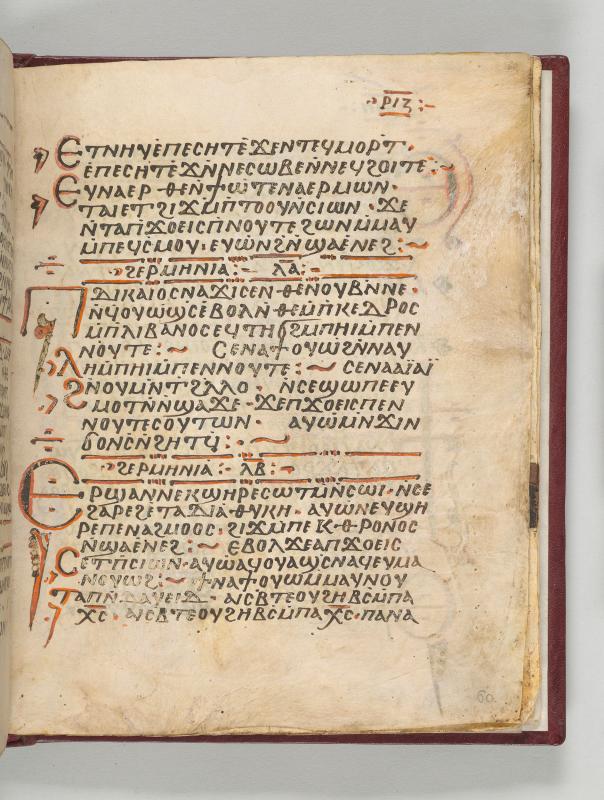 ⲣⲓⲍ
ⲉⲧⲛⲏⲩ ⲉⲡⲉⲥⲏⲧ ⲉϫⲉⲛ ⲧⲉϥⲙⲟⲣⲧ·
ⲉⲡⲉⲥⲏⲧ ⲉϫⲛ ⲛⲉⲥⲱⲃⲉ ⲛⲛⲉϥϩⲟⲓⲧⲉ:~
ⲉⲩⲛⲁⲉⲣ ⲑⲉ ⲛϯⲱⲧⲉ ⲛⲁⲉⲣⲙⲱⲛ·
ⲧⲁⲓ ⲉⲧϩⲓϫⲙ ⲡⲧⲟⲟⲩ ⲛⲥⲓⲱⲛ· ϫⲉ
ⲛⲧⲁⲡϫⲟⲉⲓⲥ ⲡⲛⲟⲩⲧⲉ ϩⲱⲛ ⲙⲙⲁⲩ
ⲙⲡⲉϥⲥⲙⲟⲩ· ⲉⲩⲱⲛϩ ⲛϣⲁⲉⲛⲉϩ:~
ϩⲉⲣⲙⲏⲛⲓⲁ:– ⲗⲁ:–
ⲡⲇⲓⲕⲁⲓⲟⲥ ⲛⲁϫⲓⲥⲉ ⲛⲑⲉ ⲛⲟⲩⲃⲛⲛⲉ·
ⲛϥⲟⲩⲱϣⲥ ⲉⲃⲟⲗ ⲛⲑⲉ ⲙⲡⲕⲉⲇⲣⲟⲥ
ⲙⲡⲗⲓⲃⲁⲛⲟⲥ ⲉϥⲧⲏϭ ϩⲙ ⲡⲏⲓ ⲙⲡⲉⲛ
ⲛⲟⲩⲧⲉ:~ ⲥⲉⲛⲁϯⲟⲩⲱ ϩⲛ ⲛⲁⲩ
ⲗⲏ ⲙⲡⲏⲓ ⲙⲡⲉⲛⲛⲟⲩⲧⲉ:~ ⲥⲉⲛⲁⲁⲓⲁⲓ
ϩⲛ ⲟⲩⲙⲛⲧϩⲗⲗⲟ· ⲛⲥⲉϣⲱⲡⲉ ⲉⲩ
ⲙⲟⲧⲛ ⲛϣⲁϫⲉ· ϫⲉ ⲡϫⲟⲉⲓⲥ ⲡⲉⲛ
ⲛⲟⲩⲧⲉ ⲥⲟⲩⲧⲱⲛ· ⲁⲩⲱ ⲙⲛ ϫⲓⲛ
ϭⲟⲛⲥ ⲛϩⲏⲧϥ:·~
ϩⲉⲣⲙⲏⲛⲓⲁ:– ⲗⲃ:–
ⲉⲣϣⲁⲛ ⲛⲉⲕϣⲏⲣⲉ ⲥⲱⲧⲙ ⲛⲥⲱⲓ· ⲛⲥⲉ
ϩⲁⲣⲉϩ ⲉⲧⲁⲇⲓⲁⲑⲩⲕⲏ· ⲁⲩⲱ ⲛⲉⲩϣⲏ
ⲣⲉ ⲡⲉⲛⲁϩⲙⲟⲟⲥ· ϩⲓϫⲙ ⲡⲉⲕⲑⲣⲟⲛⲟⲥ
ⲛϣⲁⲉⲛⲉϩ:~ ⲉⲃⲟⲗ ϫⲉ ⲁⲡϫⲟⲉⲓⲥ
ⲥⲉⲧⲡ ⲥⲓⲱⲛ· ⲁⲩⲱ ⲁϥⲟⲩⲁϣⲥ ⲛⲁϥ ⲉⲩⲙⲁ
ⲛⲟⲩⲱϩ:~ ϯⲛⲁϯⲟⲩⲱ ⲙⲙⲁⲩ ⲛⲟⲩ
ⲧⲁⲡ ⲛⲇⲁⲩⲉⲓⲇ· ⲁⲓⲥⲃⲧⲉ ⲟⲩϩⲏⲃⲥ ⲙⲡⲁ
ⲭⲥ· ⲁⲓⲥⲃⲧⲉ ⲟⲩϩⲏⲃⲥ ⲙⲡⲁⲭⲥ· ⲡⲁⲛⲁ
60